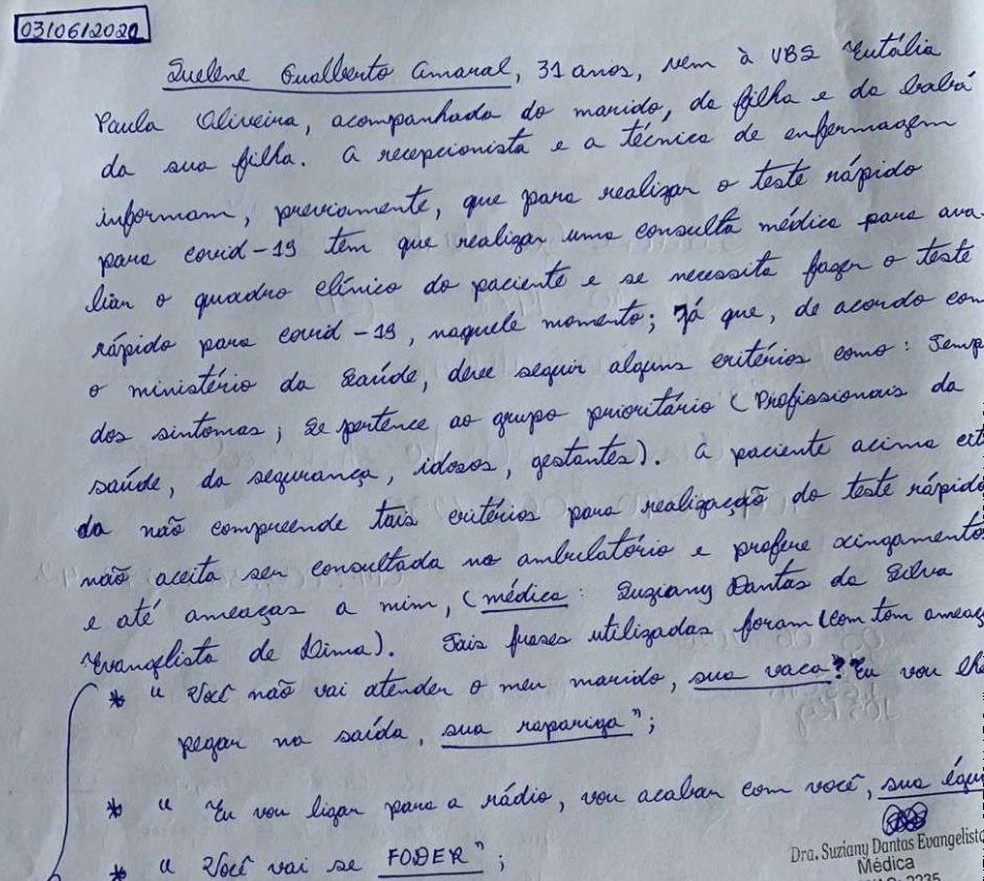 03/06/2020
Suelene Gualberto Amaral, 31 anos, vem à UBS Eutália
Paula Oliveira, acompanhada do marido, da filha e da babá
da sua filha. A recepcionista e a técnica de enfermagem
informam, previamente, que para realizar o teste rápido
para covid-19 tem que realizar uma consulta médica para ava-
liar o quadro clínico do paciente e se necessita fazer o teste
rápido para covid-19, naquele momento; Já que, de acordo com
o ministério da Saúde, deve seguir alguns critérios como: Temp
dos sintomas; Se pertence ao grupo prioritário (Profissionais da
saúde, da segurança, idosos, gestantes). A paciente acima cit
da não compreende tais critérios para realização do teste rápido
não aceita ser consultada no ambulatório e profere xingamentos
e até ameaças a mim, (médica: Suziany Dantas da Silva
Evangelista de Lima). Tais frases utilizadas foram (com tom ameaç
* " Você não vai atender o meu marido, sua vaca? Eu vou lhe
pegar na saída, sua rapariga";
* " Eu vou ligar para a rádio, vou acabar com você, sua égu
* " Você vai se FODER";
Dra. Suziany Dantas Evangelista
Médica
2235